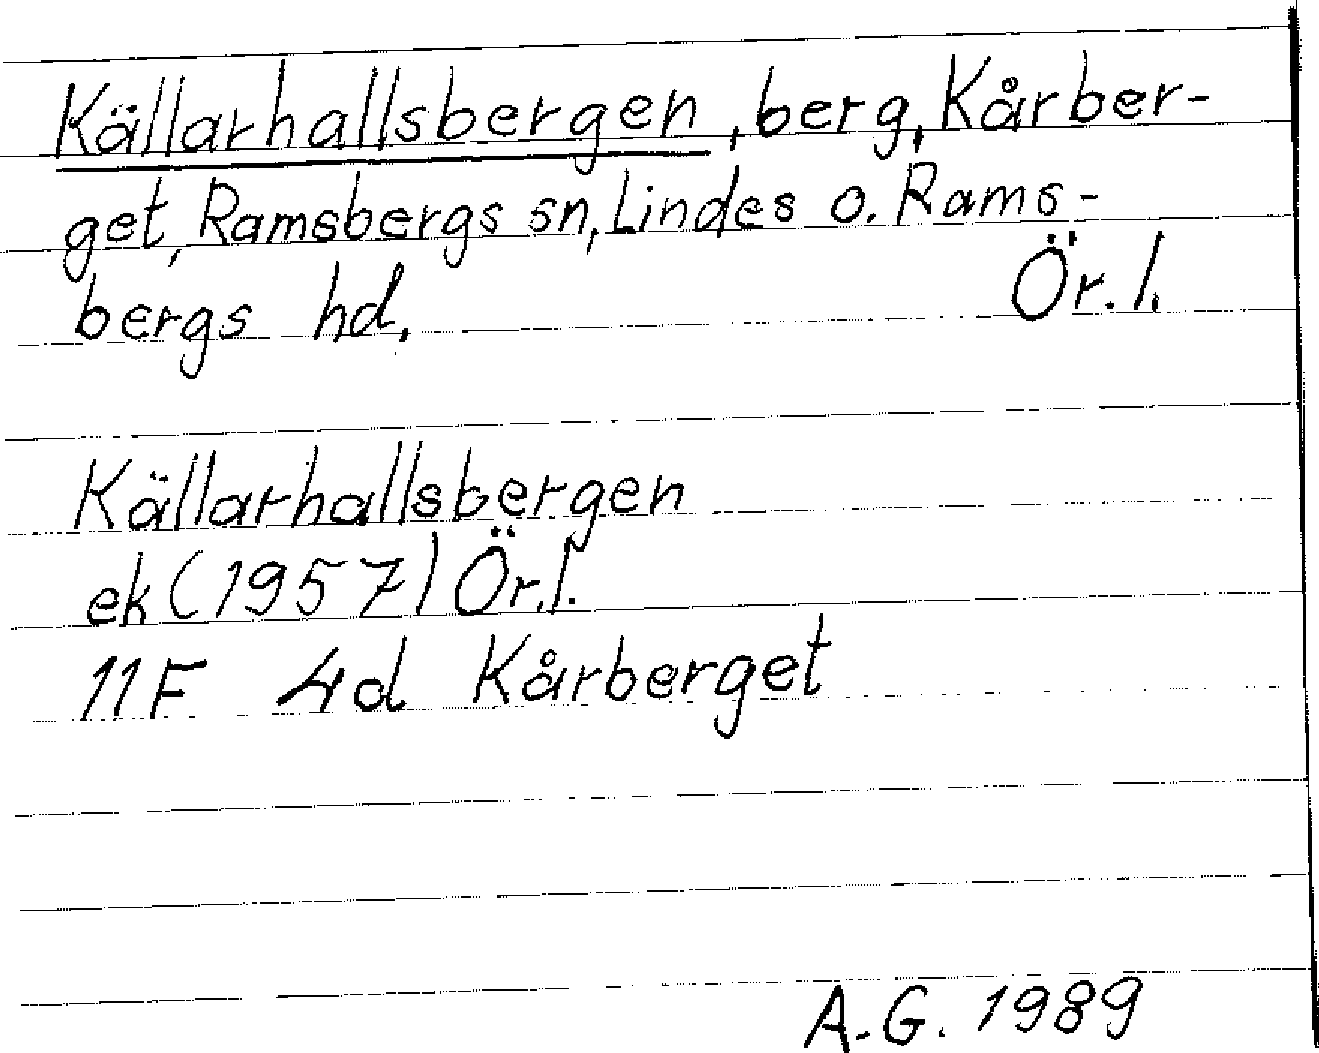 Källarhallsbergen, berg, Kårber-
get, Ramsbergs sn, Lindes o. Rams-
bergs hd. Ör. l.
Källarhallsbergen
ek (1957) Ör. l.
11F 4d Kårberget
A.G. 1989